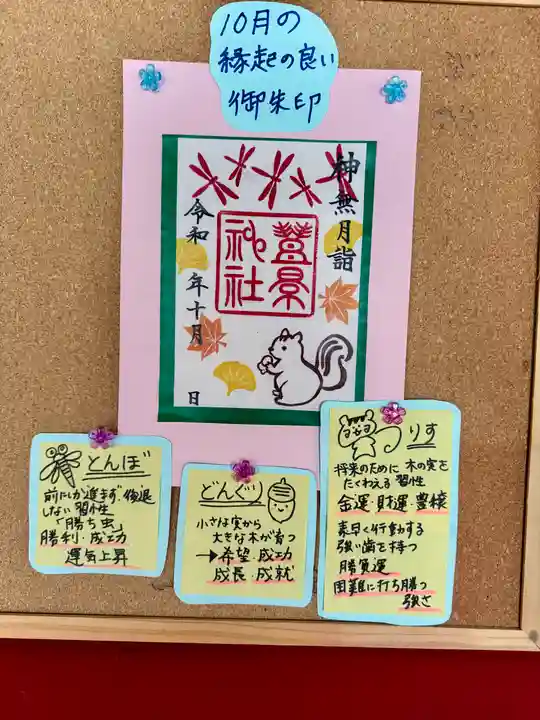 10月の
縁起の良い
御朱印
神無月詣
豊景
神社
令和 年十月 日
とんぼ
前にしか進まず・後退
しない習性
「勝ち虫」
勝利・成功
運気上昇
どんぐり
小さな実から
大きな木が育つ
→希望・成功
成長・成就
りす
将来のために木の実を
たくわえる習性
金運・財運・豊穣
素早く行動する
強い歯を持つ
勝負運
困難に打ち勝つ
強さ